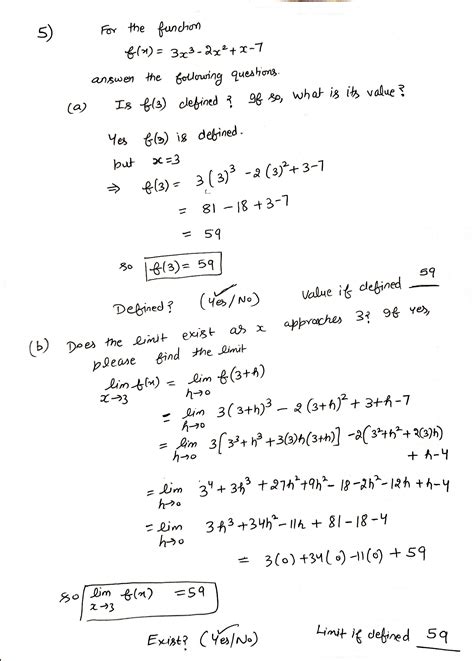 5) For the function
f(x) = 3x³-2x²+x-7
answer the following questions.
(a) Is f(3) defined? If so, what is its value?
Yes f(3) is defined.
but x=3
⇒ f(3) = 3(3)³ -2(3)²+3-7
= 81-18+3-7
= 59
so f(3) = 59
Defined? (Yes/No) ✓ Value if defined 59
(b) Does the limit exist as x approaches 3? If yes,
please find the limit
lim x→3 f(x) = lim h→0 f(3+h)
= lim h→0 3(3+h)³ - 2(3+h)² + 3+h-7
= lim h→0 3[3³+h³+3(3)h(3+h)] -2(3²+h²+2(3)h) + h-4
= lim h→0 3⁴+3h³ +27h²+9h²-18-2h²-12h+h-4
= lim h→0 3h³+34h²-11h+81-18-4
= 3(0)+34(0)-11(0)+59
so lim x→3 f(x) =59
Exist? (Yes/No) ✓ Limit if defined 59